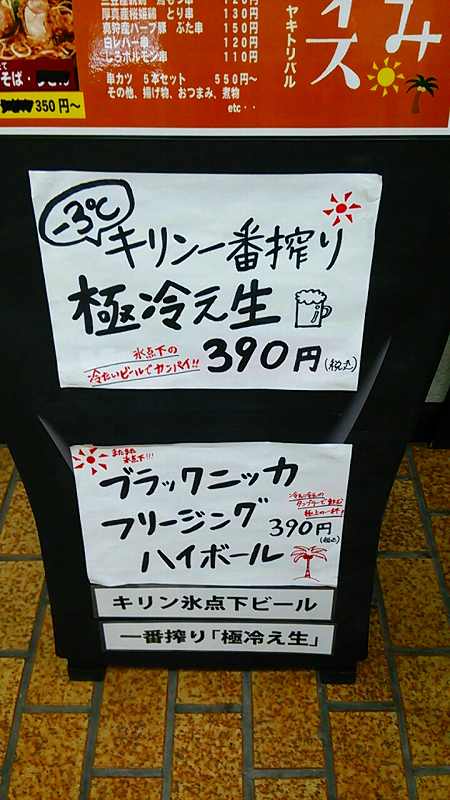 厚真産桜姫鶏 とり串 130円
真狩産ハーブ豚 ぶた串 150円
白レバー串 120円
しろホルモン串 110円
串カツ 5本セット 550円~
その他、揚げ物、おつまみ、煮物
etc・・
ヤキトリバル
み
イス
そば・
350円~
-3℃
キリン一番搾り
極冷え生
390円(税込)
氷点下の
冷たいビールでカンパイ!!
またまた
氷点下!!!
ブラックニッカ
フリージング
ハイボール
390円
(税込)
キリン氷点下ビール
一番搾り「極冷え生」